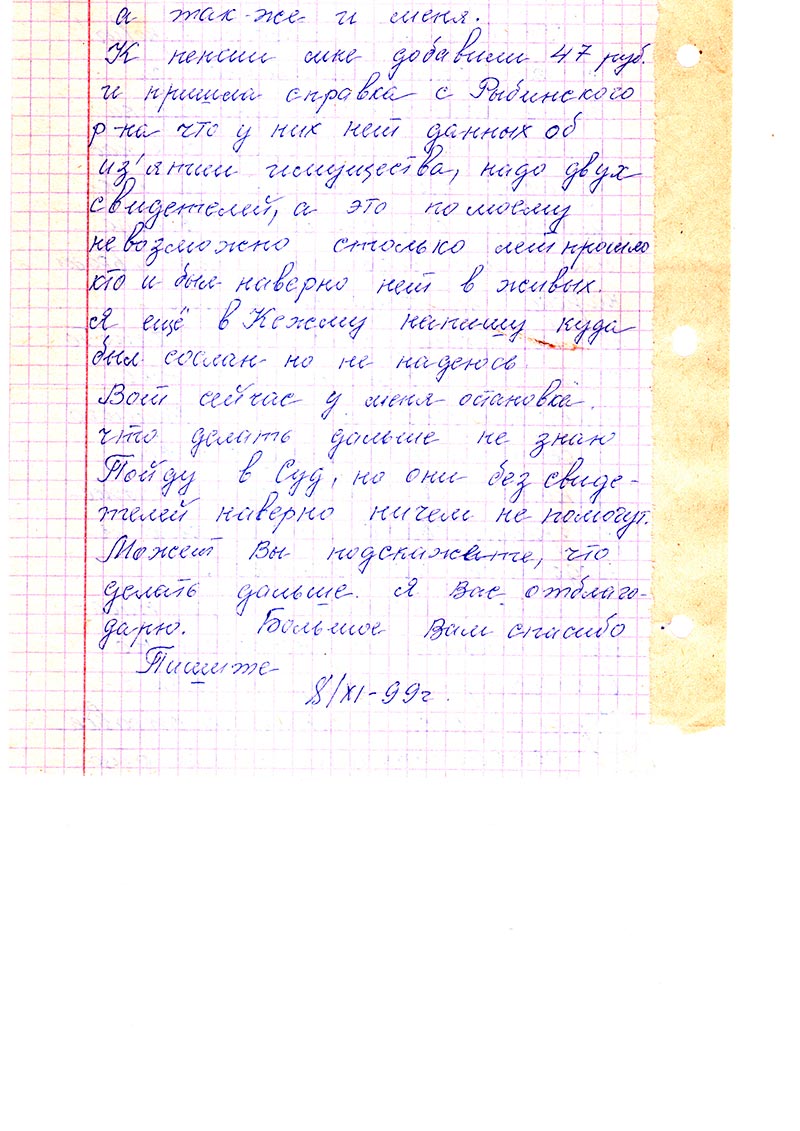 а так-же и меня.
К пенсии мне добавили 47 руб.
и пришла справка с Рыбинского
р-на что у них нет данных об
из'ятии имущества, надо двух
свидетелей, а это по моему
невозможно столько лет прошло
кто и был наверно нет в живых.
Я ещё в Кежму напишу куда
был сослан но не надеюсь
Вот сейчас у меня остановка.
что делать дальше не знаю
Пойду в Суд, но они без свиде-
телей наверно ничем не помогут.
Может Вы подскажете, что
делать дальше. Я Вас отблаго-
дарю. Большое Вам спасибо
Пишите
8/XI-99г.